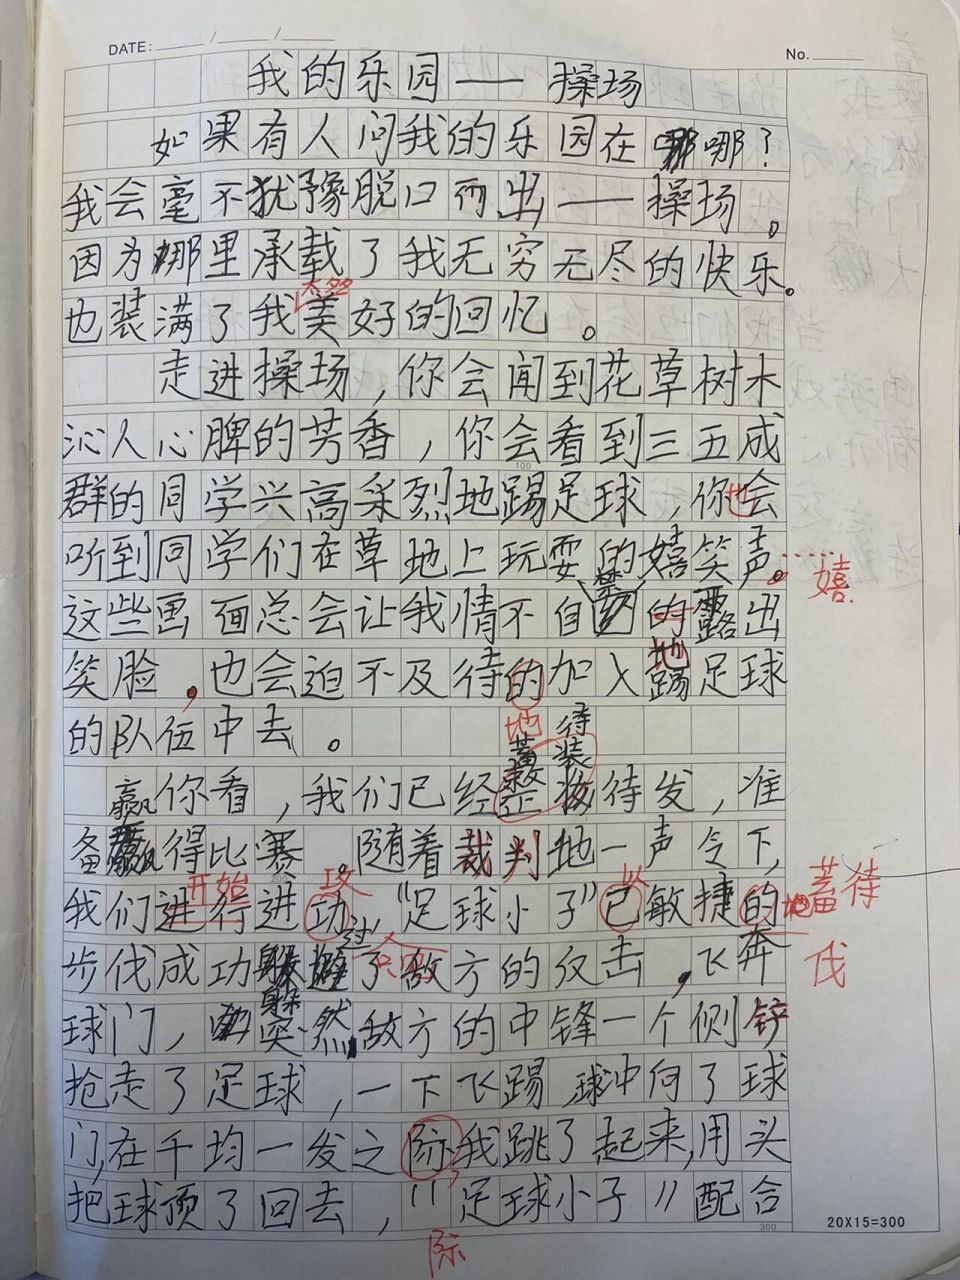 DATE: / /
No.
我的乐园——操场
如果有人问我的乐园在哪哪？
我会毫不犹豫脱口而出——操场。
因为哪里承载了我无穷无尽的快乐。
太多
也装满了我美好的回忆。
走进操场，你会闻到花草树木
沁人心脾的芳香，你会看到三五成
100
群的同学兴高采烈地踢足球，你也会
听到同学们在草地上玩耍的嬉笑声。……
嬉
这些画面总会让我情不自禁的露出
地
笑脸，也会迫不及待的加入踢足球
的队伍中去。
地
蓄待
装
赢你看，我们已经整妆待发，准
备赢得比赛。随着裁判地一声令下，
200
蓄待
开始 攻 以
我们进行进功“足球小子”已敏捷的
地
过
步伐成功躲避了敌方的攻击，飞奔
伐
躲
球门，突然敌方的中锋一个侧铲
抢走了足球，一下飞踢球冲向了球
门，在千钧一发之际，我跳了起来，用头
把球顶了回去，“足球小子”配合
300
际
20X15=300